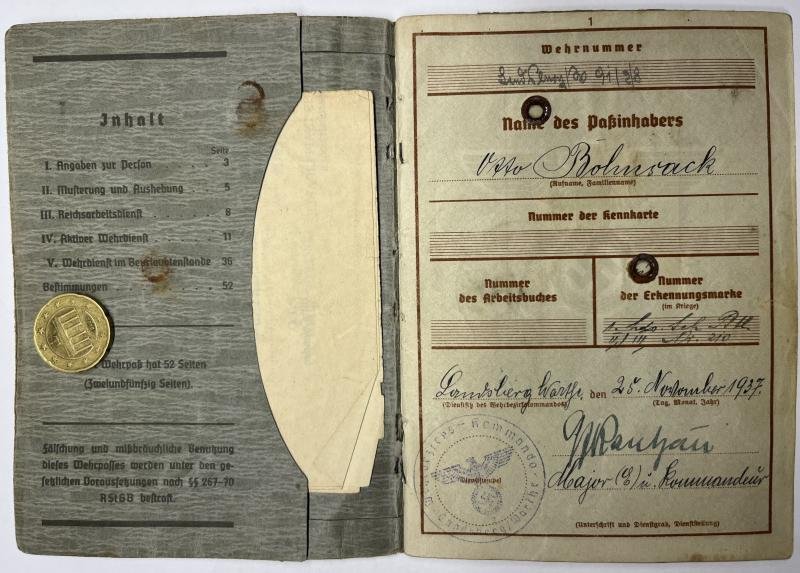 Inhalt
Seite
I. Angaben zur Person . . . . 3
II. Musterung und Aushebung . . 5
III. Reichsarbeitsdienst . . . . 8
IV. Aktiver Wehrdienst . . . . 11
V. Wehrdienst im Beurlaubtenstande 36
Bestimmungen . . . . 52
Wehrpaß hat 52 Seiten
(Zweiundfünfzig Seiten).
Fälschung und mißbräuchliche Benutzung
dieses Wehrpasses werden unter den ge-
setzlichen Voraussetzungen nach §§ 267-70
RStGB bestraft.
1
Wehrnummer
91/8
Name des Paßinhabers
Otto Bohnsack
(Rufname, Familienname)
Nummer der Kennkarte
Nummer
des Arbeitsbuches
Nummer
der Erkennungsmarke
(im Kriege)
Landsberg Warthe, den 25. November 1937.
(Dienstsitz des Wehrbezirkskommandos)
(Tag, Monat, Jahr)
Major (E) u. Kommandeur
(Dienststempel)
(Unterschrift und Dienstgrad, Dienststellung)